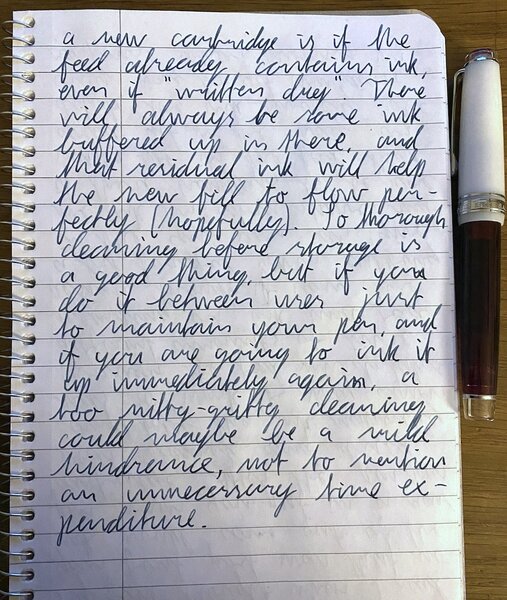 a new cartridge is if the
feed already contains ink,
even if "written dry". There
will always be some ink
buffered up in there, and
that residual ink will help
the new fill to flow per-
fectly (hopefully). So thorough
cleaning before storage is
a good thing, but if you
do it between uses just
to maintain your pen, and
if you are going to ink it
up immediately again, a
too nitty-gritty cleaning
could maybe be a mild
hindrance, not to mention
an unnecessary time ex-
penditure.